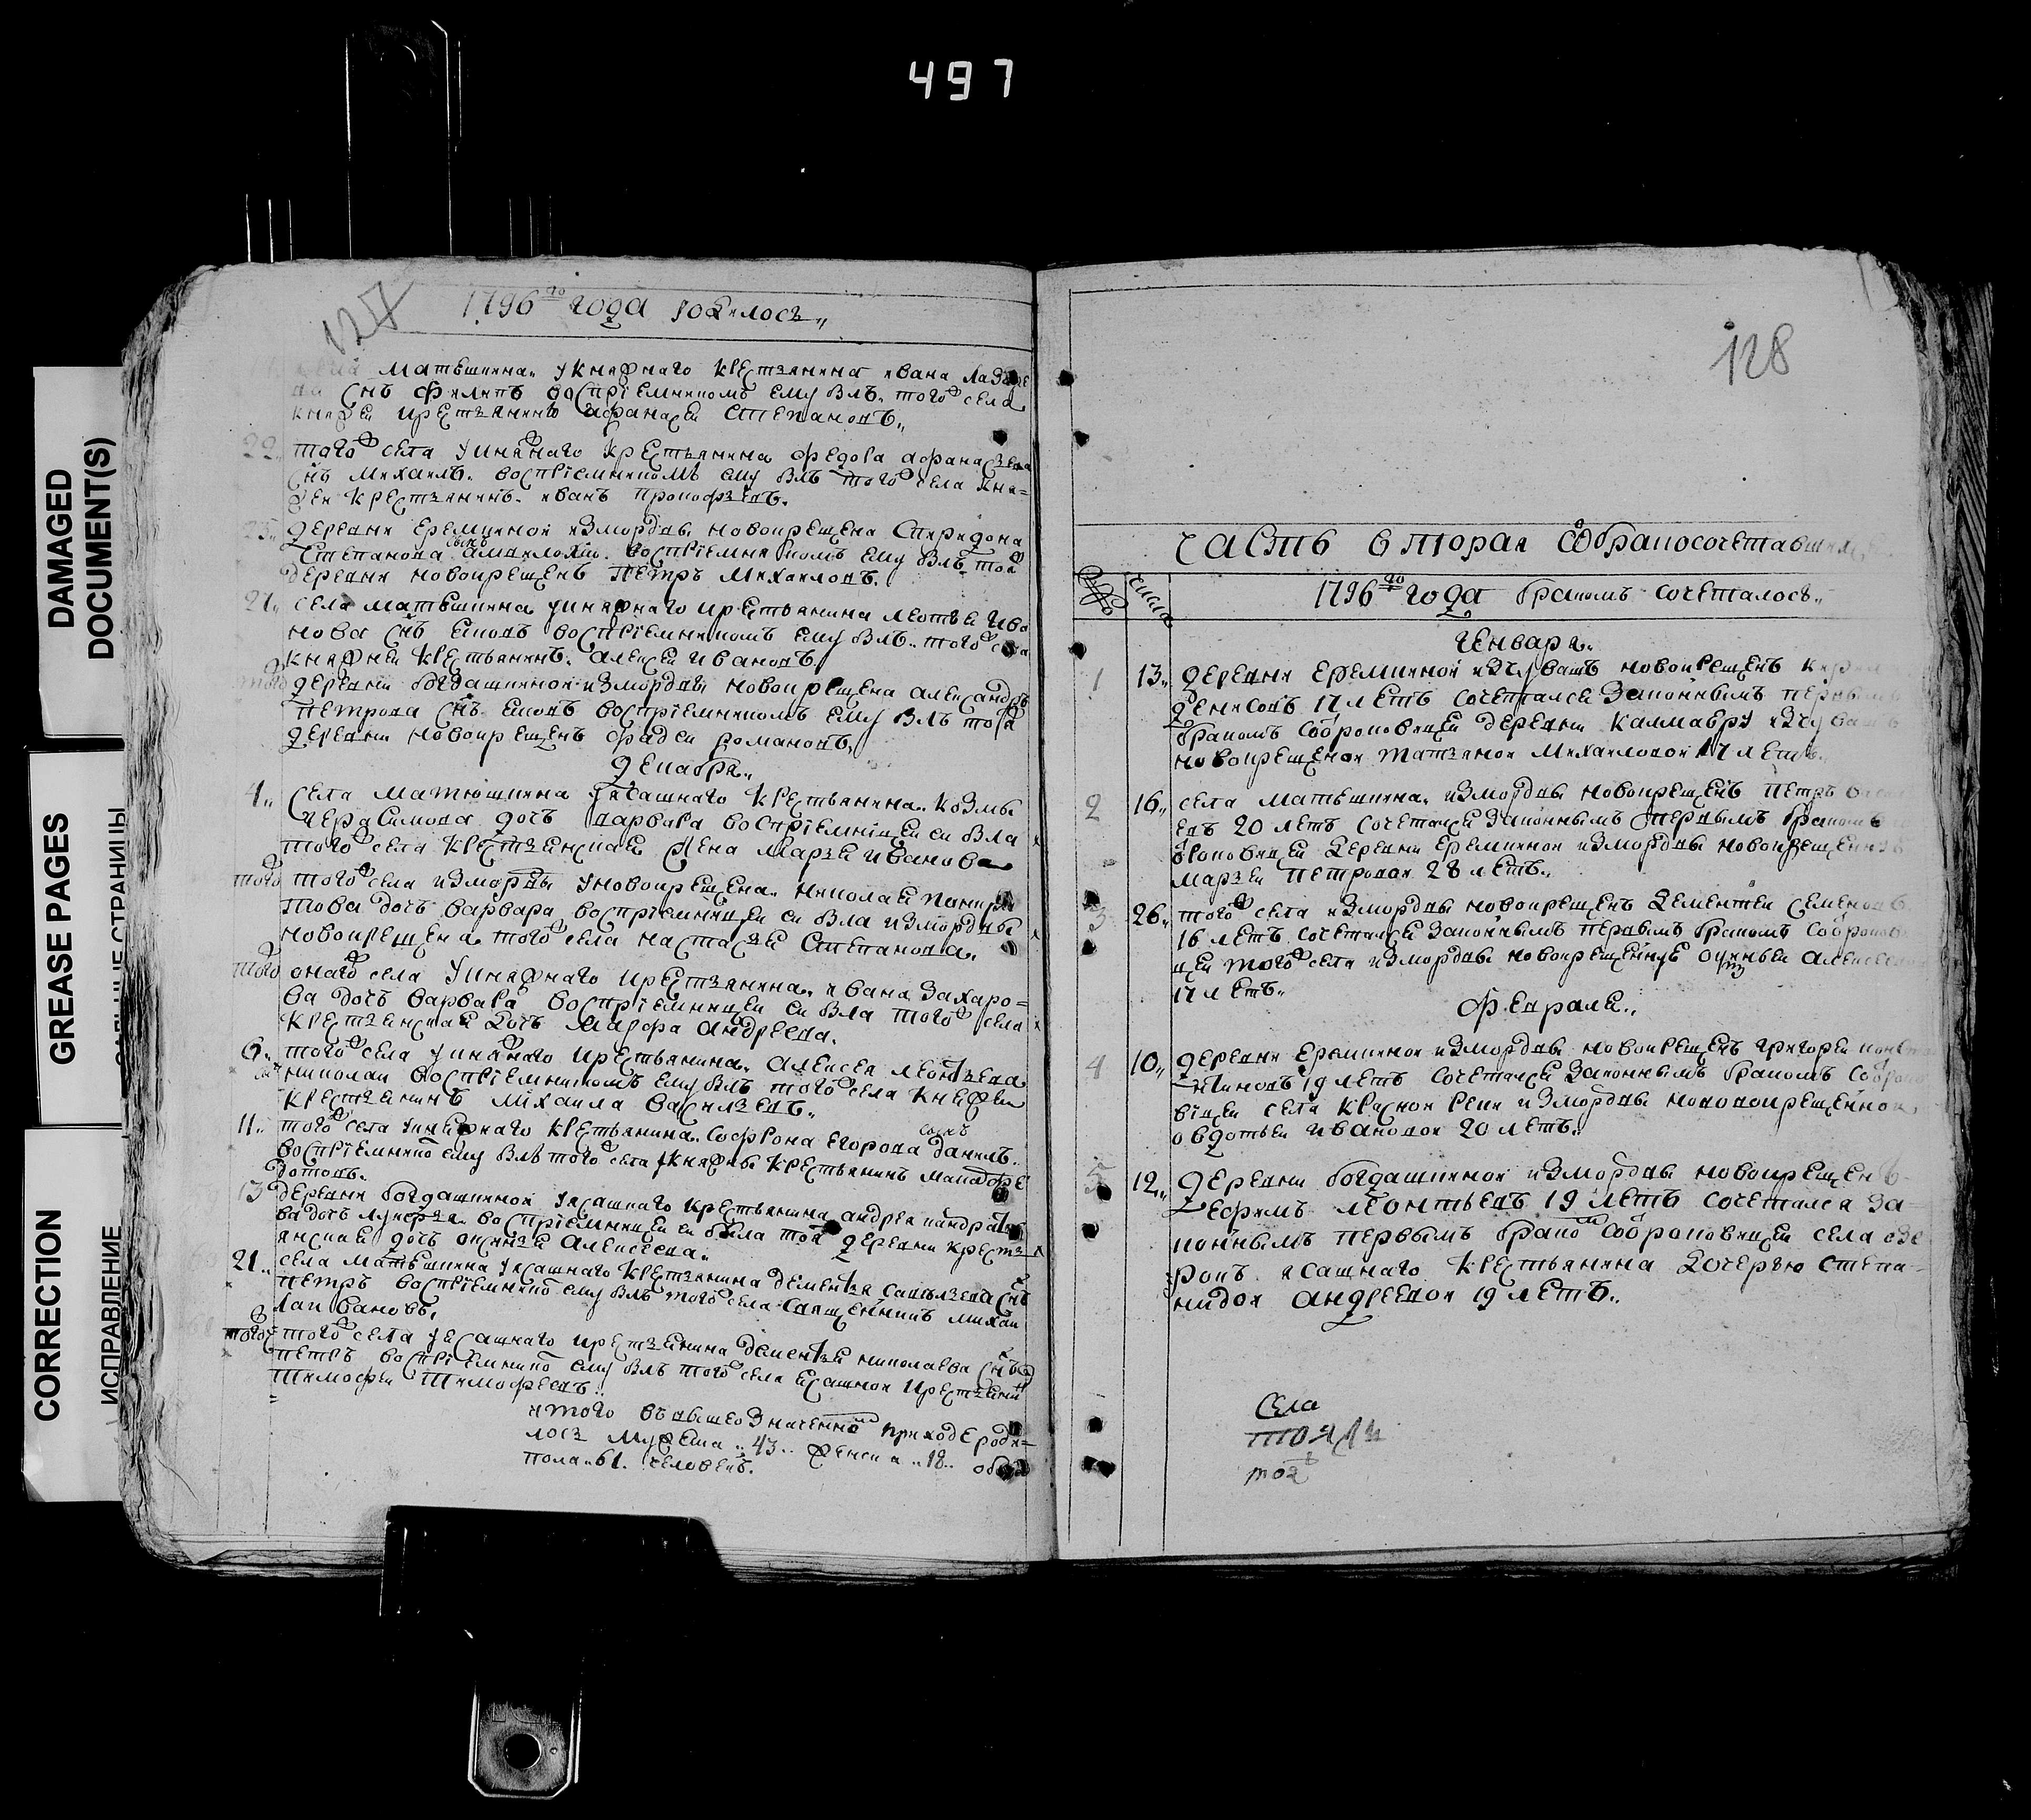 497
DAMAGED
DOCUMENT(S)
GREASE PAGES
CORRECTION
ИСПРАВЛЕНИЕ
127
1796го года родилось
Матюшкина у княжаго крестьянина ивана
снъ филипъ воспріемникомъ ему былъ того села
княжей крестьянинъ афанасей степановъ
22 того села у княжаго крестьянина федора афанасьева
снъ михаилъ воспріемникомъ ему былъ того села кня=
жей крестьянинъ иванъ прокофьевъ
23 деревни еремкиной измордвы новокрещена спиридона
степанова сынъ амвилохій воспріемникомъ ему былъ той
деревни новокрещенъ петръ михаиловъ
села матюшкина у княжаго крестьянина леонтья ива
нова снъ иаковъ воспріемникомъ ему былъ того села
княжей крестьянинъ алексей ивановъ
того деревни богдашкиной измордвы новокрещена александра
петрова снъ иаковъ воспріемникомъ ему былъ той
деревни новокрещенъ фадей романовъ
декабря
4 села матюшкина у ясашнаго крестьянина козмы
герасимова дочь варвара воспріемницей ей была
того села крестьянская жена марья иванова
того того села измордвы у новокрещена николая
това дочь варвара воспріемницей ей была измордвы
новокрещена того села настасья степанова
того онаго села у княжаго крестьянина ивана захаро=
ва дочь варвара воспріемницей ей была того села
крестьянская дочь марфа андреева
6 того села у княжаго крестьянина алексея леонтьева
николай воспріемникомъ ему былъ того села княжей
крестьянинъ михаила васильевъ
11 того села у княжаго крестьянина софрона егорова сынъ данилъ
воспріемнико ему былъ того села княжей крестьянинъ
дотовъ
13 деревни богдашкиной у ясашнаго крестьянина андрея кандрать
ва дочь лукерья воспріемницей ей была той деревни кресть
янская дочь аксинья алексеева
21 села матюшкина у ясашнаго крестьянина дементья савельева снъ
петръ воспріемнико ему былъ того села священникъ михаи
ла ивановъ
того того села у ясашнаго крестьянина дементья николаева снъ
петръ воспріемнико ему былъ того села ясашной крестьянинъ
тимофей тимофеевъ
итого въ вышеозначенномъ приходе роди=
лось мужеска 43 женска 18 обоего
пола 61 человекъ
128
часть вторая о бракосочетавшихся
число
1796го года бракомъ сочеталось
генваря
1 13 деревни еремкиной изчувашъ новокрещенъ
денисовъ 17 летъ сочетался законнымъ первымъ
бракомъ соброковицей деревни калмаюру изчувашъ
новокрещеной татьяной михаиловой 17 летъ
2 16 села матюшкина измордвы новокрещенъ петръ
евъ 20 летъ сочетался законнымъ первымъ бракомъ
броковицей деревни еремкиной измордвы новокрещенной
марьей петровой 28 летъ
3 26 того села измордвы новокрещенъ дементей семеновъ
16 летъ сочетался законнымъ первымъ бракомъ соброкови
цей того села измордвы новокрещенной алексеевой
17 летъ
февраля
4 10 деревни еремкиной измордвы новокрещенъ григорей
19 летъ сочетался законнымъ бракомъ собро
вицей села красной реки измордвы новокрещенной
овдотьей ивановой 20 летъ
5 12 деревни богдашкиной измордвы новокрещенъ
ефимъ леонтьевъ 19 летъ сочетался за=
коннымъ первымъ бракомъ соброковицей села озе
рокъ ясашнаго крестьянина дочерью степа=
нидой андреевой 19 летъ
Села
той